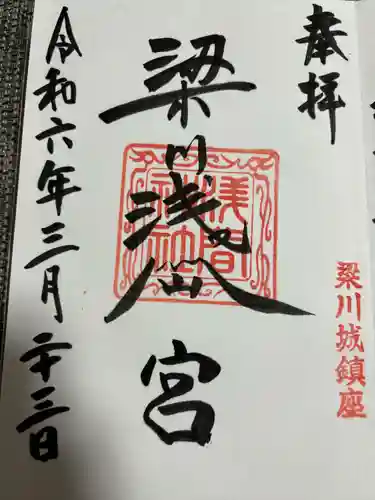 奉拝
梁川城鎮座
梁川浅間宮
浅間神社
令和六年三月二十三日